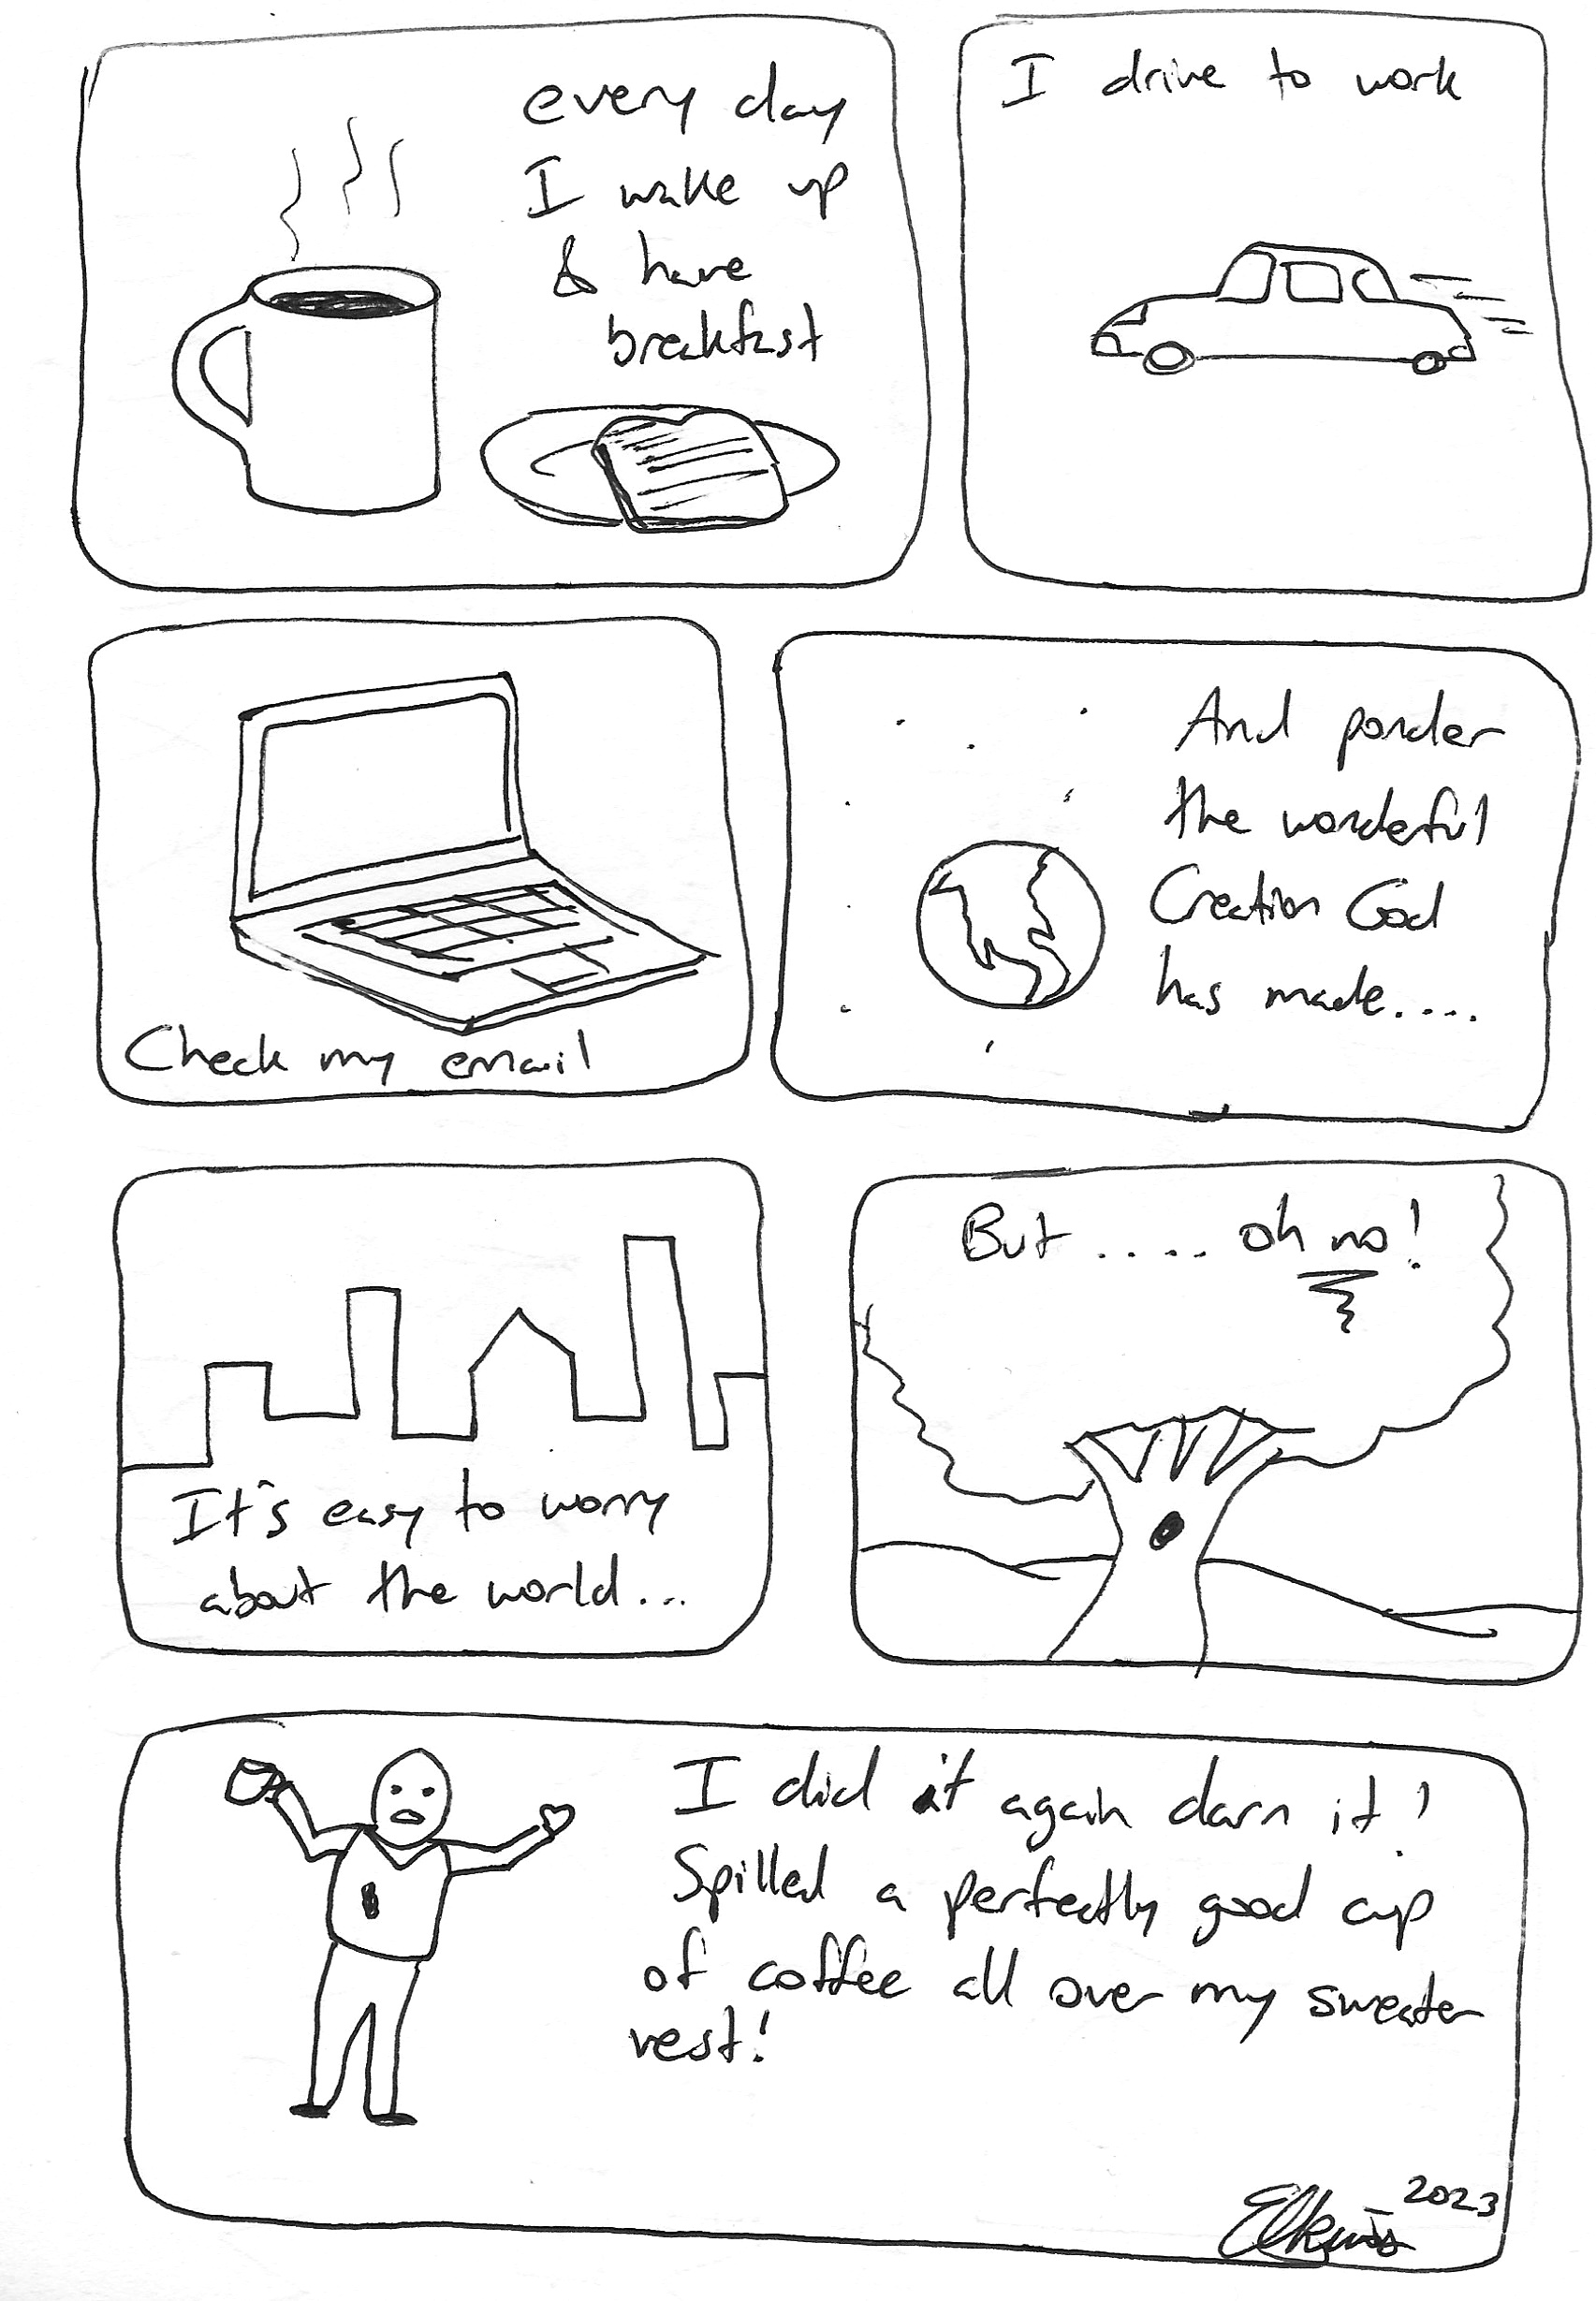 every day
I wake up
& have
breakfast
I drive to work
Check my email
And ponder
the wonderful
Creation God
has made....
It's easy to worry
about the world...
But ..... oh no!
I did it again darn it!
Spilled a perfectly good cup
of coffee all over my sweater
vest!
2023